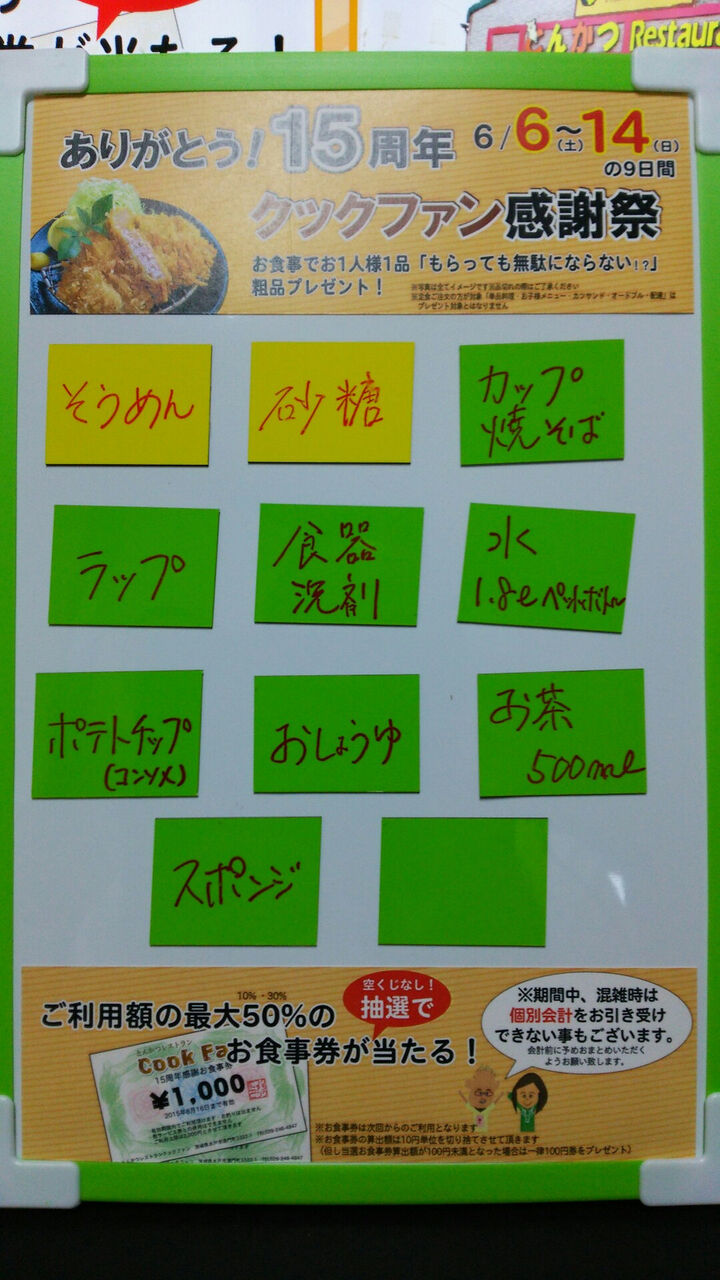 とんかつ Restaura
ありがとう！15周年 6/6(土)～14(日)
の9日間
クックファン感謝祭
お食事でお1人様1品「もらっても無駄にならない!?」
粗品プレゼント！
※写真は全てイメージです※品切れの際はご了承ください
※定食ご注文の方が対象「単品料理・お子様メニュー・カツサンド・オードブル・配達」は
プレゼント対象とはなりません
そうめん
砂糖
カップ
焼そば
ラップ
食器
洗剤
水
1.8ℓペットボトル
ポテトチップ
(コンソメ)
おしょうゆ
お茶
500mℓ
スポンジ
空くじなし！
抽選で
10%・30%
ご利用額の最大50%の
お食事券が当たる！
※期間中、混雑時は
個別会計をお引き受け
できない事もございます。
会計前に予めおまとめいただく
ようお願い致します。
とんかつレストラン
Cook Fa
15周年感謝お食事券
¥1,000
2015年8月16日まで有効
※お食事券は次回からのご利用となります
※お食事券の算出額は10円単位を切り捨てさせて頂きます
(但し当選お食事券算出額が100円未満となった場合は一律100円券をプレゼント)